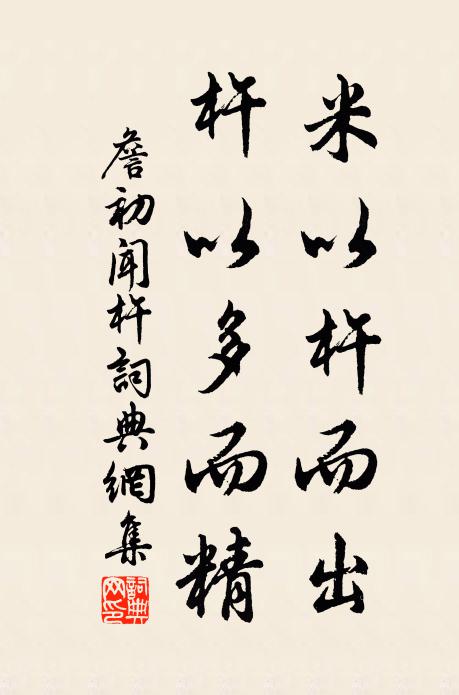 米以杵而出
杵以多而精
詹初聞杵詞典網集
詞典网印